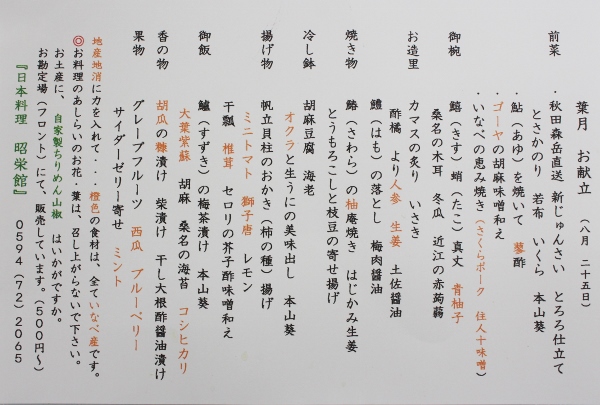 葉月 お献立 (八月 二十五日)
前菜 ・秋田森岳直送 新じゅんさい とろろ仕立て
とさかのり 若布 いくら 本山葵
・鮎(あゆ)を焼いて 蓼酢
・ゴーヤの胡麻味噌和え
・いなべの恵み焼き(さくらポーク 住人十味噌)
御椀 鱚(きす) 蛸(たこ)真丈 青柚子
桑名の木耳 冬瓜 近江の赤蒟蒻
お造里 カマスの炙り いさき
酢橘 より人参 生姜 土佐醤油
鱧(はも)の落とし 梅肉醤油
焼き物 鰆(さわら)の柚庵焼き はじかみ生姜
とうもろこしと枝豆の寄せ揚げ
冷し鉢 胡麻豆腐 海老
オクラと生うにの美味出し 本山葵
揚げ物 帆立貝柱のおかき(柿の種)揚げ
ミニトマト 獅子唐 レモン
干瓢 椎茸 セロリの芥子酢味噌和え
御飯 鱸(すずき)の梅茶漬け 本山葵
大葉紫蘇 胡麻 桑名の海苔 コシヒカリ
香の物 胡瓜の糠漬け 柴漬け 干し大根酢醤油漬け
果物 グレープフルーツ 西瓜 ブルーベリー
サイダーゼリー寄せ ミント
地産地消に力を入れて・・・橙色の食材は、全ていなべ産です。
◎お料理のあしらいのお花・葉は、召し上がらないで下さい。
お土産に、自家製ちりめん山椒 はいかがですか。
お勘定場(フロント)にて、販売しています。(500円~)
『日本料理 昭栄館』 0594(72)2065